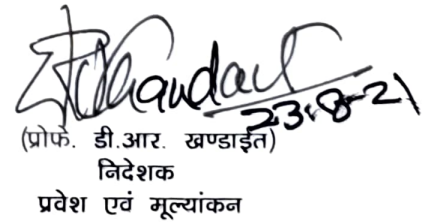 23.8-21
(प्रोफे. डी.आर. खण्डाईत)
निदेशक
प्रवेश एवं मूल्यांकन